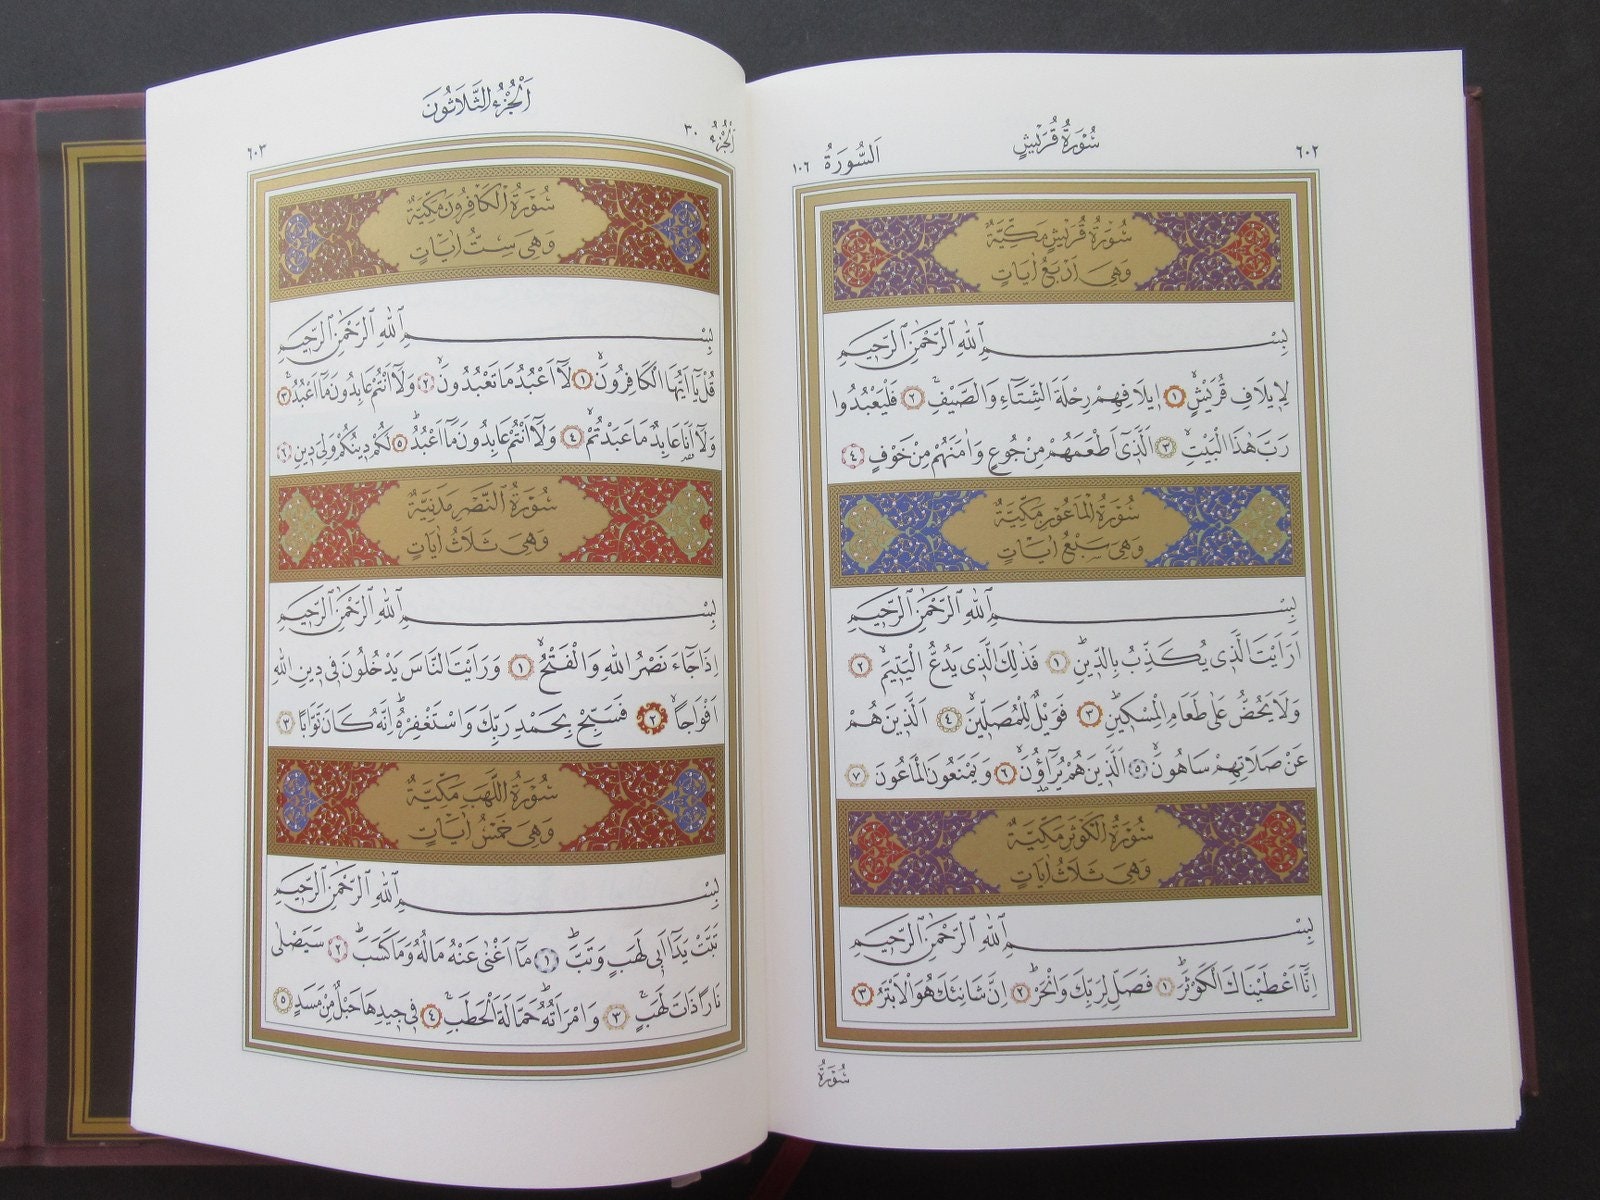 ٦٠٢
سُورَةُ قُرَيْشٍ
اَلسُّورَةُ ١٠٦
سُورَةُ قُرَيْشٍ مَكِّيَّةٌ
وَهِىَ اَرْبَعُ اٰيَاتٍ
بِسْمِ اللّٰهِ الرَّحْمٰنِ الرَّحِيمِ
لِاِيلَافِ قُرَيْشٍۙ ١ اٖيلَافِهِمْ رِحْلَةَ الشِّتَٓاءِ وَالصَّيْفِۚ ٢ فَلْيَعْبُدُوا
رَبَّ هٰذَا الْبَيْتِۙ ٣ اَلَّذٖٓى اَطْعَمَهُمْ مِنْ جُوعٍ وَاٰمَنَهُمْ مِنْ خَوْفٍ ٤
سُورَةُ الْمَاعُونِ مَكِّيَّةٌ
وَهِىَ سَبْعُ اٰيَاتٍ
بِسْمِ اللّٰهِ الرَّحْمٰنِ الرَّحِيمِ
اَرَاَيْتَ الَّذٖى يُكَذِّبُ بِالدّٖينِؕ ١ فَذٰلِكَ الَّذٖى يَدُعُّ الْيَتٖيمَۙ ٢
وَلَا يَحُضُّ عَلٰى طَعَامِ الْمِسْكٖينِؕ ٣ فَوَيْلٌ لِلْمُصَلّٖينَۙ ٤ اَلَّذٖينَ هُمْ
عَنْ صَلَاتِهِمْ سَاهُونَۙ ٥ اَلَّذٖينَ هُمْ يُرَٓاؤُ۫نَۙ ٦ وَيَمْنَعُونَ الْمَاعُونَ ٧
سُورَةُ الْكَوْثَرِ مَكِّيَّةٌ
وَهِىَ ثَلَاثُ اٰيَاتٍ
بِسْمِ اللّٰهِ الرَّحْمٰنِ الرَّحِيمِ
اِنَّٓا اَعْطَيْنَاكَ الْكَوْثَرَؕ ١ فَصَلِّ لِرَبِّكَ وَانْحَرْؕ ٢ اِنَّ شَانِئَكَ هُوَ الْاَبْتَرُ ٣
سُورَةُ
اَلْجُزْءُ ٣٠
اَلْجُزْءُ الثَّلَاثُونَ
٦٠٣
سُورَةُ الْكَافِرُونَ مَكِّيَّةٌ
وَهِىَ سِتُّ اٰيَاتٍ
بِسْمِ اللّٰهِ الرَّحْمٰنِ الرَّحِيمِ
قُلْ يَٓا اَيُّهَا الْكَافِرُونَۙ ١ لَٓا اَعْبُدُ مَا تَعْبُدُونَۙ ٢ وَلَٓا اَنْتُمْ عَابِدُونَ مَٓا اَعْبُدُۚ ٣
وَلَٓا اَنَا۬ عَابِدٌ مَا عَبَدْتُمْۙ ٤ وَلَٓا اَنْتُمْ عَابِدُونَ مَٓا اَعْبُدُؕ ٥ لَكُمْ دٖينُكُمْ وَلِىَ دٖينِ ٦
سُورَةُ النَّصْرِ مَدَنِيَّةٌ
وَهِىَ ثَلَاثُ اٰيَاتٍ
بِسْمِ اللّٰهِ الرَّحْمٰنِ الرَّحِيمِ
اِذَا جَٓاءَ نَصْرُ اللّٰهِ وَالْفَتْحُۙ ١ وَرَاَيْتَ النَّاسَ يَدْخُلُونَ فٖى دٖينِ اللّٰهِ
اَفْوَاجًاۙ ٢ فَسَبِّحْ بِحَمْدِ رَبِّكَ وَاسْتَغْفِرْهُؕ اِنَّهُ كَانَ تَوَّابًا ٣
سُورَةُ اللَّهَبِ مَكِّيَّةٌ
وَهِىَ خَمْسُ اٰيَاتٍ
بِسْمِ اللّٰهِ الرَّحْمٰنِ الرَّحِيمِ
تَبَّتْ يَدَٓا اَبٖى لَهَبٍ وَتَبَّؕ ١ مَٓا اَغْنٰى عَنْهُ مَالُهُ وَمَا كَسَبَؕ ٢ سَيَصْلٰى
نَارًا ذَاتَ لَهَبٍۚ ٣ وَامْرَاَتُهُؕ حَمَّالَةَ الْحَطَبِۚ ٤ فٖى جٖيدِهَا حَبْلٌ مِنْ مَسَدٍ ٥